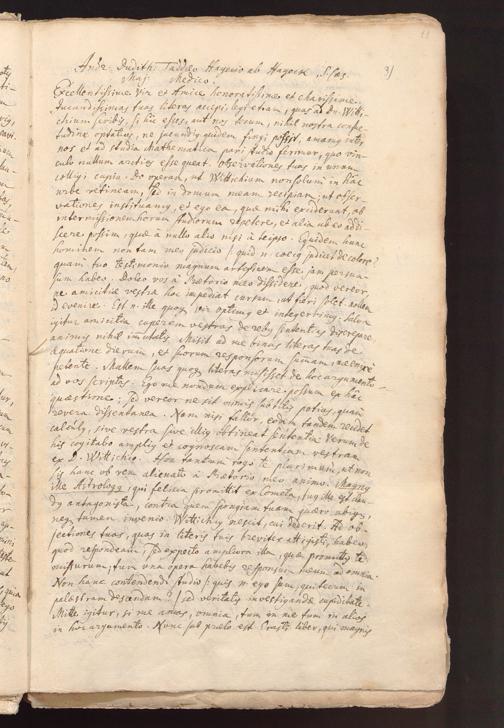 31
Andr. Dudith. Taddeo Hagecio ab Hayeck, S. Caes.
Maj. Medico.
Excellentissime Vir et Amice honoratissime et charissime.
Jucundissimas tuas literas accepi, legi etiam, quas ad Dn. Witti-
chium scribis, si hic esses, aut nos isthic, nihil nostra consue-
tudine optatius, ne jucundius quidem fingi possit, amamus inter
nos et ad studia Mathematica pari studio ferimur, quo vin-
culo nullum arctius esse queat. Observationes tuas in unum
colligi cupio. Do operam, ut Wittichium non solum in hac
urbe retineam, sed in domum meam recipiam, ut obser-
vationes instituamus, et ego ea, quae mihi exciderunt, ab
intermissione horum studiorum repetere, et alia ab eo addi-
scere possim, quae à nullo alio nisi à teipso. Equidem hunc
hominem non tam meo judicio (quid n. coecus judicet de colore?)
quam tuo testimonio magnum artificem esse, jam persua-
sum habeo. Doleo vos à Praetorio meo dissidere, quod vereor,
ne amicitiae vestrae hoc impediat cursum, ut fieri solet. nollem
id evenire. Est n. ille quoque vir optimus et integerrimus. Salva
igitur amicitia cuperem vestras de rebus sententias discrepare
animis nihil immutatis. Misit ad me binas literas tuas de
aequatione dierum, et suorum responsorum summam, me enixe
petente. Mallem suas quoque literas misisset de hoc argumento
ad vos scriptas. Ego me nondum explicare possum ex hac
quaestione; sed vereor ne sit nimis subtilis potius, quam
revera dissentanea. Nam nisi fallor, eodem tandem recidet
calculus, sive vestra sive illius obtineat sententia. Verum de
his cogitabo amplius et cognoscam sententiam vestram
ex D. Wittichio. Hoc tantum rogo te plurimum, ut non
sis hanc ob rem alienato à Praetorio meo animo. Magnus
ille Astrologus, qui felicia promittit ex Cometa,
antagonista, contra quem spongiam tuam quaero ubique,
neque tamen invenio. Wittichius nescit, cui dederit. Ad ob-
jectiones tuas, quas in literis tuis breviter attigisti, habeo,
quod respondeam, sed expecto ampliora illa, quae promittis te
missurum, tum una opera habebis responsum meum ad omnia.
Non hanc contendendi studio (quis n. ego sum, qui tecum in
palaestram descendam?) sed veritatis investigandae cupiditate.
Mitte igitur, si me amas, omnia, tum in me tum in alios
in hoc argumento. Nunc sub praelo est Erasti liber, qui magnis